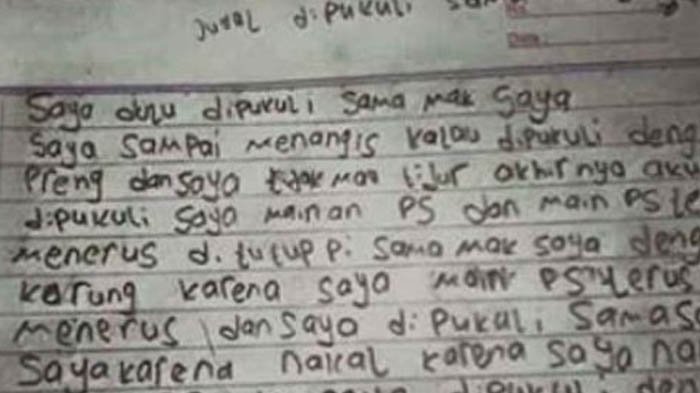 Jusal dipukuli sam
No.
Date.
Saya dulu dipukuli sama mak saya
Saya sampai menangis kalau dipukuli deng
Preng dan saya tidak mau tidur akhirnya aku
dipukuli saya mainan PS dan main PS te
menerus di tutup pi sama mak saya deng
karung karena saya main PS terus
menerus dan saya di pukuli samas
Saya karena nakal karena saya na
dipukuli den